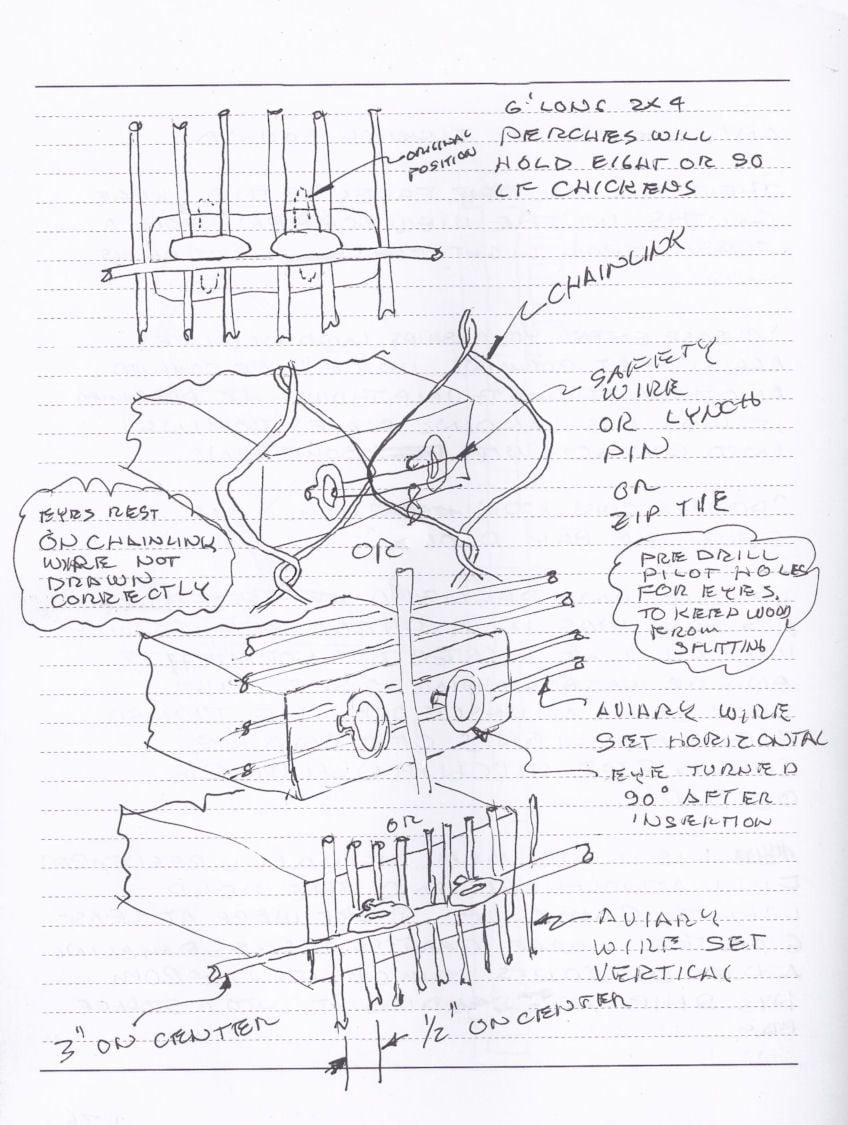 6' LONG 2X4
PERCHES WILL
HOLD EIGHT OR SO
LF CHICKENS
ORIGINAL
POSITION
CHAINLINK
SAFETY
WIRE
OR LYNCH
PIN
OR
ZIP TIE
EYES REST
ON CHAINLINK
WIRE NOT
DRAWN
CORRECTLY
OR
PREDRILL
PILOT HOLES
FOR EYES.
TO KEEP WOOD
FROM
SPLITTING
AVIARY WIRE
SET HORIZONTAL
EYE TURNED
90° AFTER
INSERTION
OR
AVIARY
WIRE SET
VERTICAL
3" ON CENTER
1/2" ON CENTER